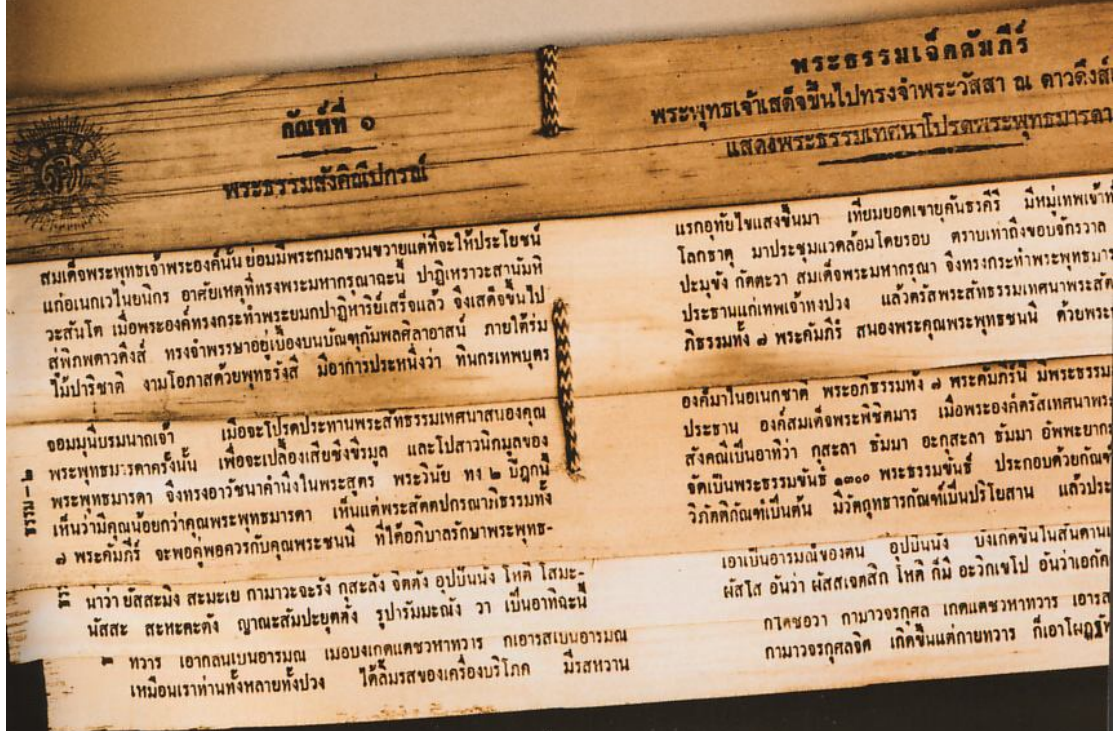 กัณฑ์ที่ ๑
พระธรรมสังคิณีปกรณ์
พระธรรมเจ็ดคัมภีร์
พระพุทธเจ้าเสด็จขึ้นไปทรงจำพระวัสสา ณ ดาวดึงส์
แสดงพระธรรมเทศนาโปรดพระพุทธมารดา
สมเด็จพระพุทธเจ้าพระองค์นั้น ย่อมมีพระกมลขวนขวายแต่ที่จะให้ประโยชน์
แก่อเนกเวไนยนิกร อาศัยเหตุที่ทรงพระมหากรุณาฉะนี้ ปาฏิเหราวะสานัมหิ
วะสันโต เมื่อพระองค์ทรงกระทำพระยมกปาฏิหาริย์เสร็จแล้ว จึงเสด็จขึ้นไป
สู่พิภพดาวดึงส์ ทรงจำพรรษาอยู่เบื้องบนบัณฑุกัมพลศิลาอาสน์ ภายใต้ร่ม
ไม้ปาริชาติ งามโอภาสด้วยพุทธรังสี มีอาการประหนึ่งว่า ทินกรเทพบุตร
แรกอุทัยไขแสงขึ้นมา เทียมยอดเขายุคันธวคีรี มีหมู่เทพเจ้า
โลกธาตุ มาประชุมแวดล้อมโดยรอบ ตราบเท่าถึงขอบจักรวาล
ปะมุขัง กัตตะวา สมเด็จพระมหากรุณา จึงทรงกระทำพระพุทธมาร
ประธานแก่เทพเจ้าทงปวง แล้วตรัสพระสัทธรรมเทศนาพระสัต
ภิธรรมทั้ง ๗ พระคัมภีร์ สนองพระคุณพระพุทธชนนี ด้วยพระ
ธรรม–๒
จอมมุนีบรมนาถเจ้า เมื่อจะโปรดประทานพระสัทธรรมเทศนาสนองคุณ
พระพุทธมารดาครั้งนั้น เพื่อจะเปลื้องเสียซึ่งขีรมูล และโปสาวนิกมูลของ
พระพุทธมารดา จึงทรงอาวัชนาคำนึงในพระสูตร พระวินัย ทง ๒ ปิฎกนี้
เห็นว่ามีคุณน้อยกว่าคุณพระพุทธมารดา เห็นแต่พระสัตตปกรณาภิธรรมทั้ง
๗ พระคัมภีร์ จะพอคู่พอควรกับคุณพระชนนี ที่ได้อภิบาลรักษาพระพุทธ-
องค์มาในอเนกชาติ พระอภิธรรมทั้ง ๗ พระคัมภีร์นี้ มีพระธรรม
ประธาน องค์สมเด็จพระพิชิตมาร เมื่อพระองค์ตรัสเทศนาพระ
สังคณีเป็นอาทิว่า กุสะลา ธัมมา อะกุสะลา ธัมมา อัพพะยาก
จัดเป็นพระธรรมขันธ์ ๑๓๐๐ พระธรรมขันธ์ ประกอบด้วยกัณฑ์
วิภัตติกัณฑ์เป็นต้น มีวัตถุทธารกัณฑ์เป็นปริโยสาน แล้วประ
ธร
นาว่า ยัสสะมิง สะมะเย กามาวะจะรัง กุสะลัง จิตตัง อุปปันนัง โหติ โสมะ-
นัสสะ สะหะคะตัง ญาณะสัมปะยุตตัง รูปารัมมะณัง วา เป็นอาทิฉะนี้
เอาเป็นอารมณ์ของตน อุปปันนัง บังเกิดขึ้นในสันดาน
ผัสโส อันว่า ผัสสเจตสิก โหติ ก็มี อะวิกเขโป อันว่าเอกัค
ทวาร เอากลนเบนอารมณ เมอบงเกดแตชวหาทวาร กเอารสเบนอารมณ
เหมือนเราท่านทั้งหลายทั้งปวง ได้ลิ้มรสของเครื่องบริโภค มีรสหวาน
กามาวจรกุศล เกดแตชวหาทวาร
กามาวจรกุศลจิต เกิดขึ้นแต่กายทวาร ก็เอาโผฏฐัพ